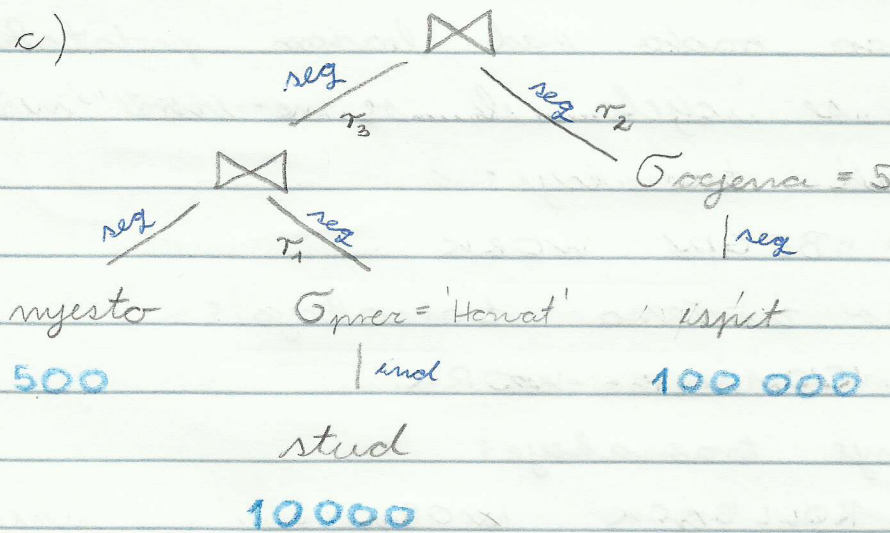 c)
⋈
seq seq
r₃ r₂
⋈ σ ocjena = 5
seq seq seq
r₁
mjesto σ prez = 'Horvat' ispit
500 ind 100 000
stud
10000